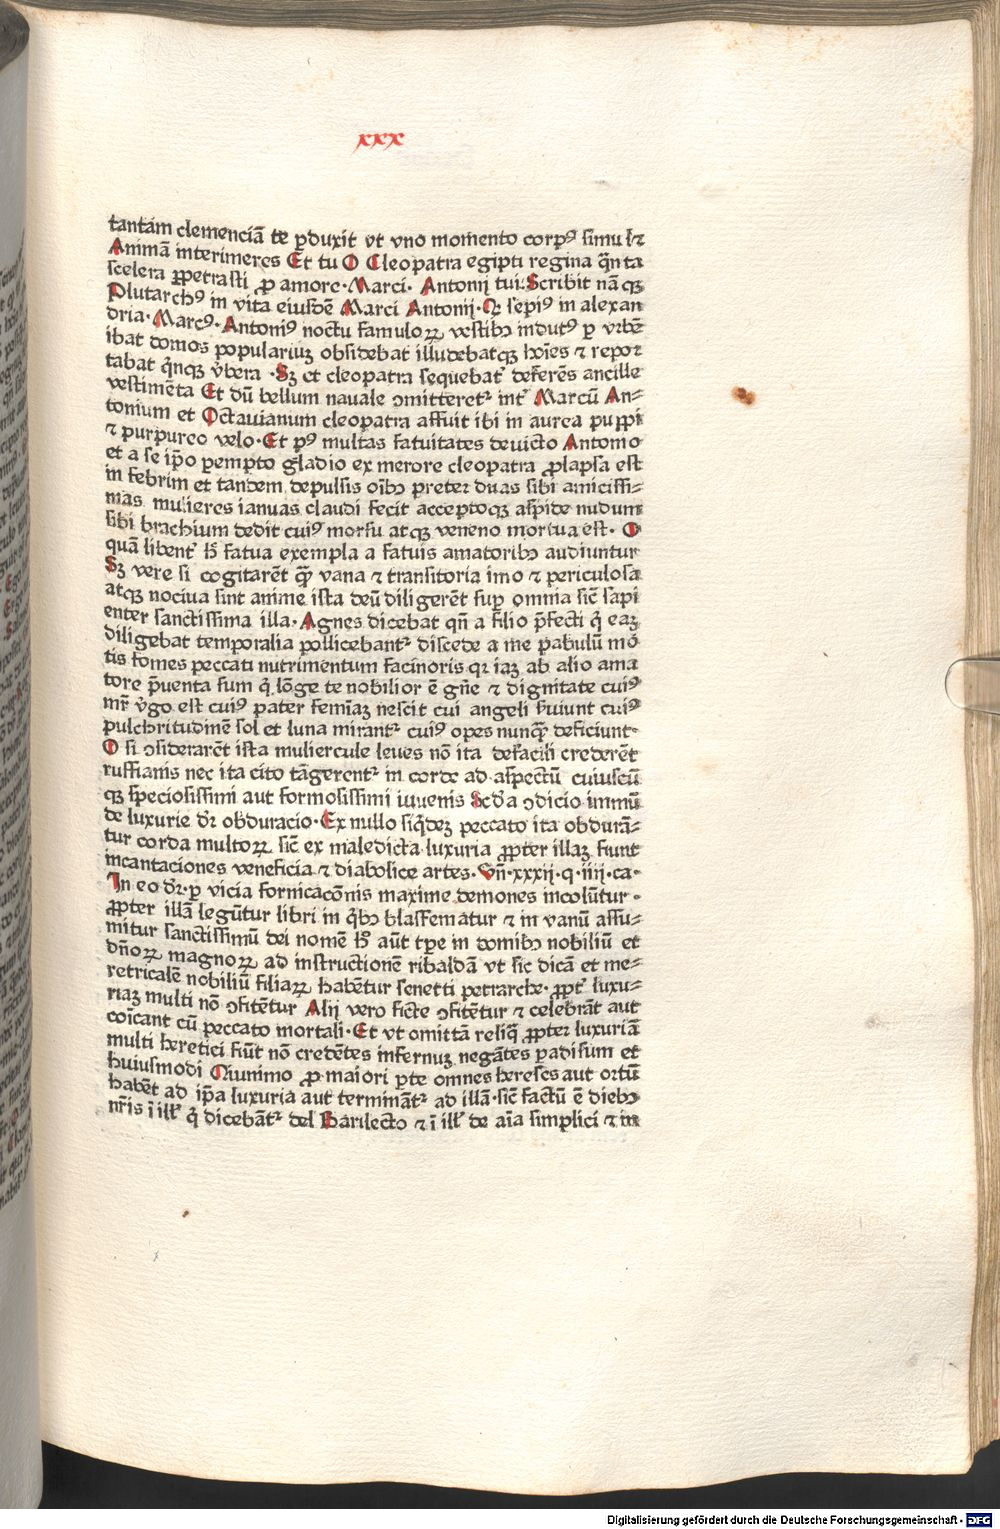 xxx
tantam clemenciā te ꝑduxit vt vno momento corpꝰ simul ⁊
Animā interimeres Et tu O Cleopatra egipti regina q̄nta
scelera ꝑpetrasti ꝓ amore· Marci· Antonij tui· Scribit nāqꝫ
Plutarchꝰ in vita eiusdē Marci Antonij· Qꝛ sepiꝰ in alexan
dria· Marcꝰ· Antoniꝰ noctu famuloꝝ vestibꝫ indutꝰ ꝑ vrbē
ibat domos populariuꝫ obsidebat illudebatqꝫ hoīes ⁊ repor
tabat q̄nqꝫ v̄bera · Sꝫ et cleopatra sequebat᷑ deferēs ancille
vestimēta Et dū bellum nauale ↄmitteret᷑ int᷑ Marcū An⸗
tonium et Octauianum cleopatra affuit ibi in aurea puppi
⁊ purpureo velo· Et pꝰ multas fatuitates deuicto Antonio
et a se ip̄o ꝑempto gladio ex merore cleopatra ꝓlapsa est
in febrim et tandem depulsis oībꝫ preter duas sibi amicissi⸗
mas mulieres ianuas claudi fecit acceptoqꝫ aspide nudum
sibi brachium dedit cuiꝰ morsu atqꝫ veneno mortua est· O
quā libent᷑ h̄ fatua exempla a fatuis amatoribꝫ audiuntur
Sꝫ vere si cogitarēt qꝫ̄ vana ⁊ transitoria imo ⁊ periculosa
atqꝫ nociua sint anime ista deū diligerēt suꝑ omnia sic̄ sapi
enter sanctissima illa· Agnes dicebat qn̄ a filio p̄fecti q̇ eaꝫ
diligebat temporalia pollicebant᷑ discede a me pabulū mo᷑
tis fomes peccati nutrimentum facinoris qꝛ iaꝫ ab alio ama
tore p̄uenta sum q̇ lōge te nobilior ē gn̄e ⁊ dignitate cuiꝰ
mr̄ v̄go est cuiꝰ pater femīaꝫ nescit cui angeli ẜuiunt cuiꝰ
pulchritudinē sol et luna mirant᷑ cuiꝰ opes nunqꝫ̄ deficiunt·
O si ↄsiderarēt ista muliercule leues nō ita defacili crederēt
ruffianis nec ita cito tāgerent᷑ in corde ad aspectū cuiuscū
qꝫ speciosissimi aut formosissimi iuuenis Scd̓a ↄdicio immū
de luxurie dr̄ obduracio· Ex nullo siq̄deꝫ peccato ita obdurā⸗
tur corda multoꝝ sic̄ ex maledicta luxuria ꝓpter illaꝫ fiunt
incantaciones veneficia ⁊ diabolice artes· Vn̄· xxxij· q· iiij· ca·
In eo dr̄· ꝑ vicia fornicacōnis maxime demones incolūtur·
ꝓpter illā legūtur libri in q̇bꝫ blasfematur ⁊ in vanū assu⸗
mitur sanctissimū dei nomē hꝰ aūt tꝑe in domibꝫ nobiliū et
dn̄oꝝ magnoꝝ ad instructionē ribaldā vt sic dicā et me⸗
retricalē nobiliū filiaꝝ habētur sonetti petrarche· ꝓpt᷑ luxu⸗
riaꝫ multi nō ↄfitētur Alij vero ficte ↄfitētur ⁊ celebrāt aut
coīcant cū peccato mortali· Et vt omittā reliq̄ ꝓpter luxuriā
multi heretici fiūt nō credētes infernuꝫ negātes ꝑadisum et
huiusmodi Niunimo ꝓ maiori ꝑte omnes hereses aut ortū
habēt ad ip̄a luxuria aut termināt᷑ ad illā· sic̄ factū ē diebꝫ
nr̄is ī ill̓ q̇ dicebāt᷑ del Barilecto ⁊ ī ill̓ de aīa simplici ⁊ in
Digitalisierung gefördert durch die Deutsche Forschungsgemeinschaft - DFG